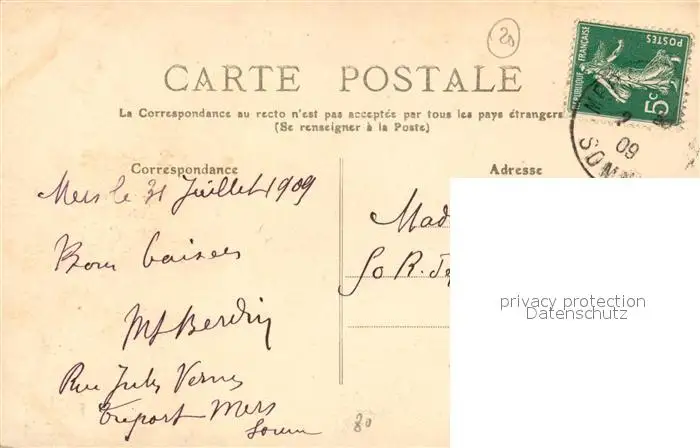 20
CARTE POSTALE
POSTES
RÉPUBLIQUE FRANÇAISE
5c
La Correspondance au recto n'est pas acceptée par tous les pays étrangers
(Se renseigner à la Poste)
09
SOMM
Correspondance
Adresse
Mers le 31 Juillet 1909
Bons baisers
Mad
50 R.
Rue Jules Vernes
Tréport Mers
Somme
80
privacy protection
Datenschutz